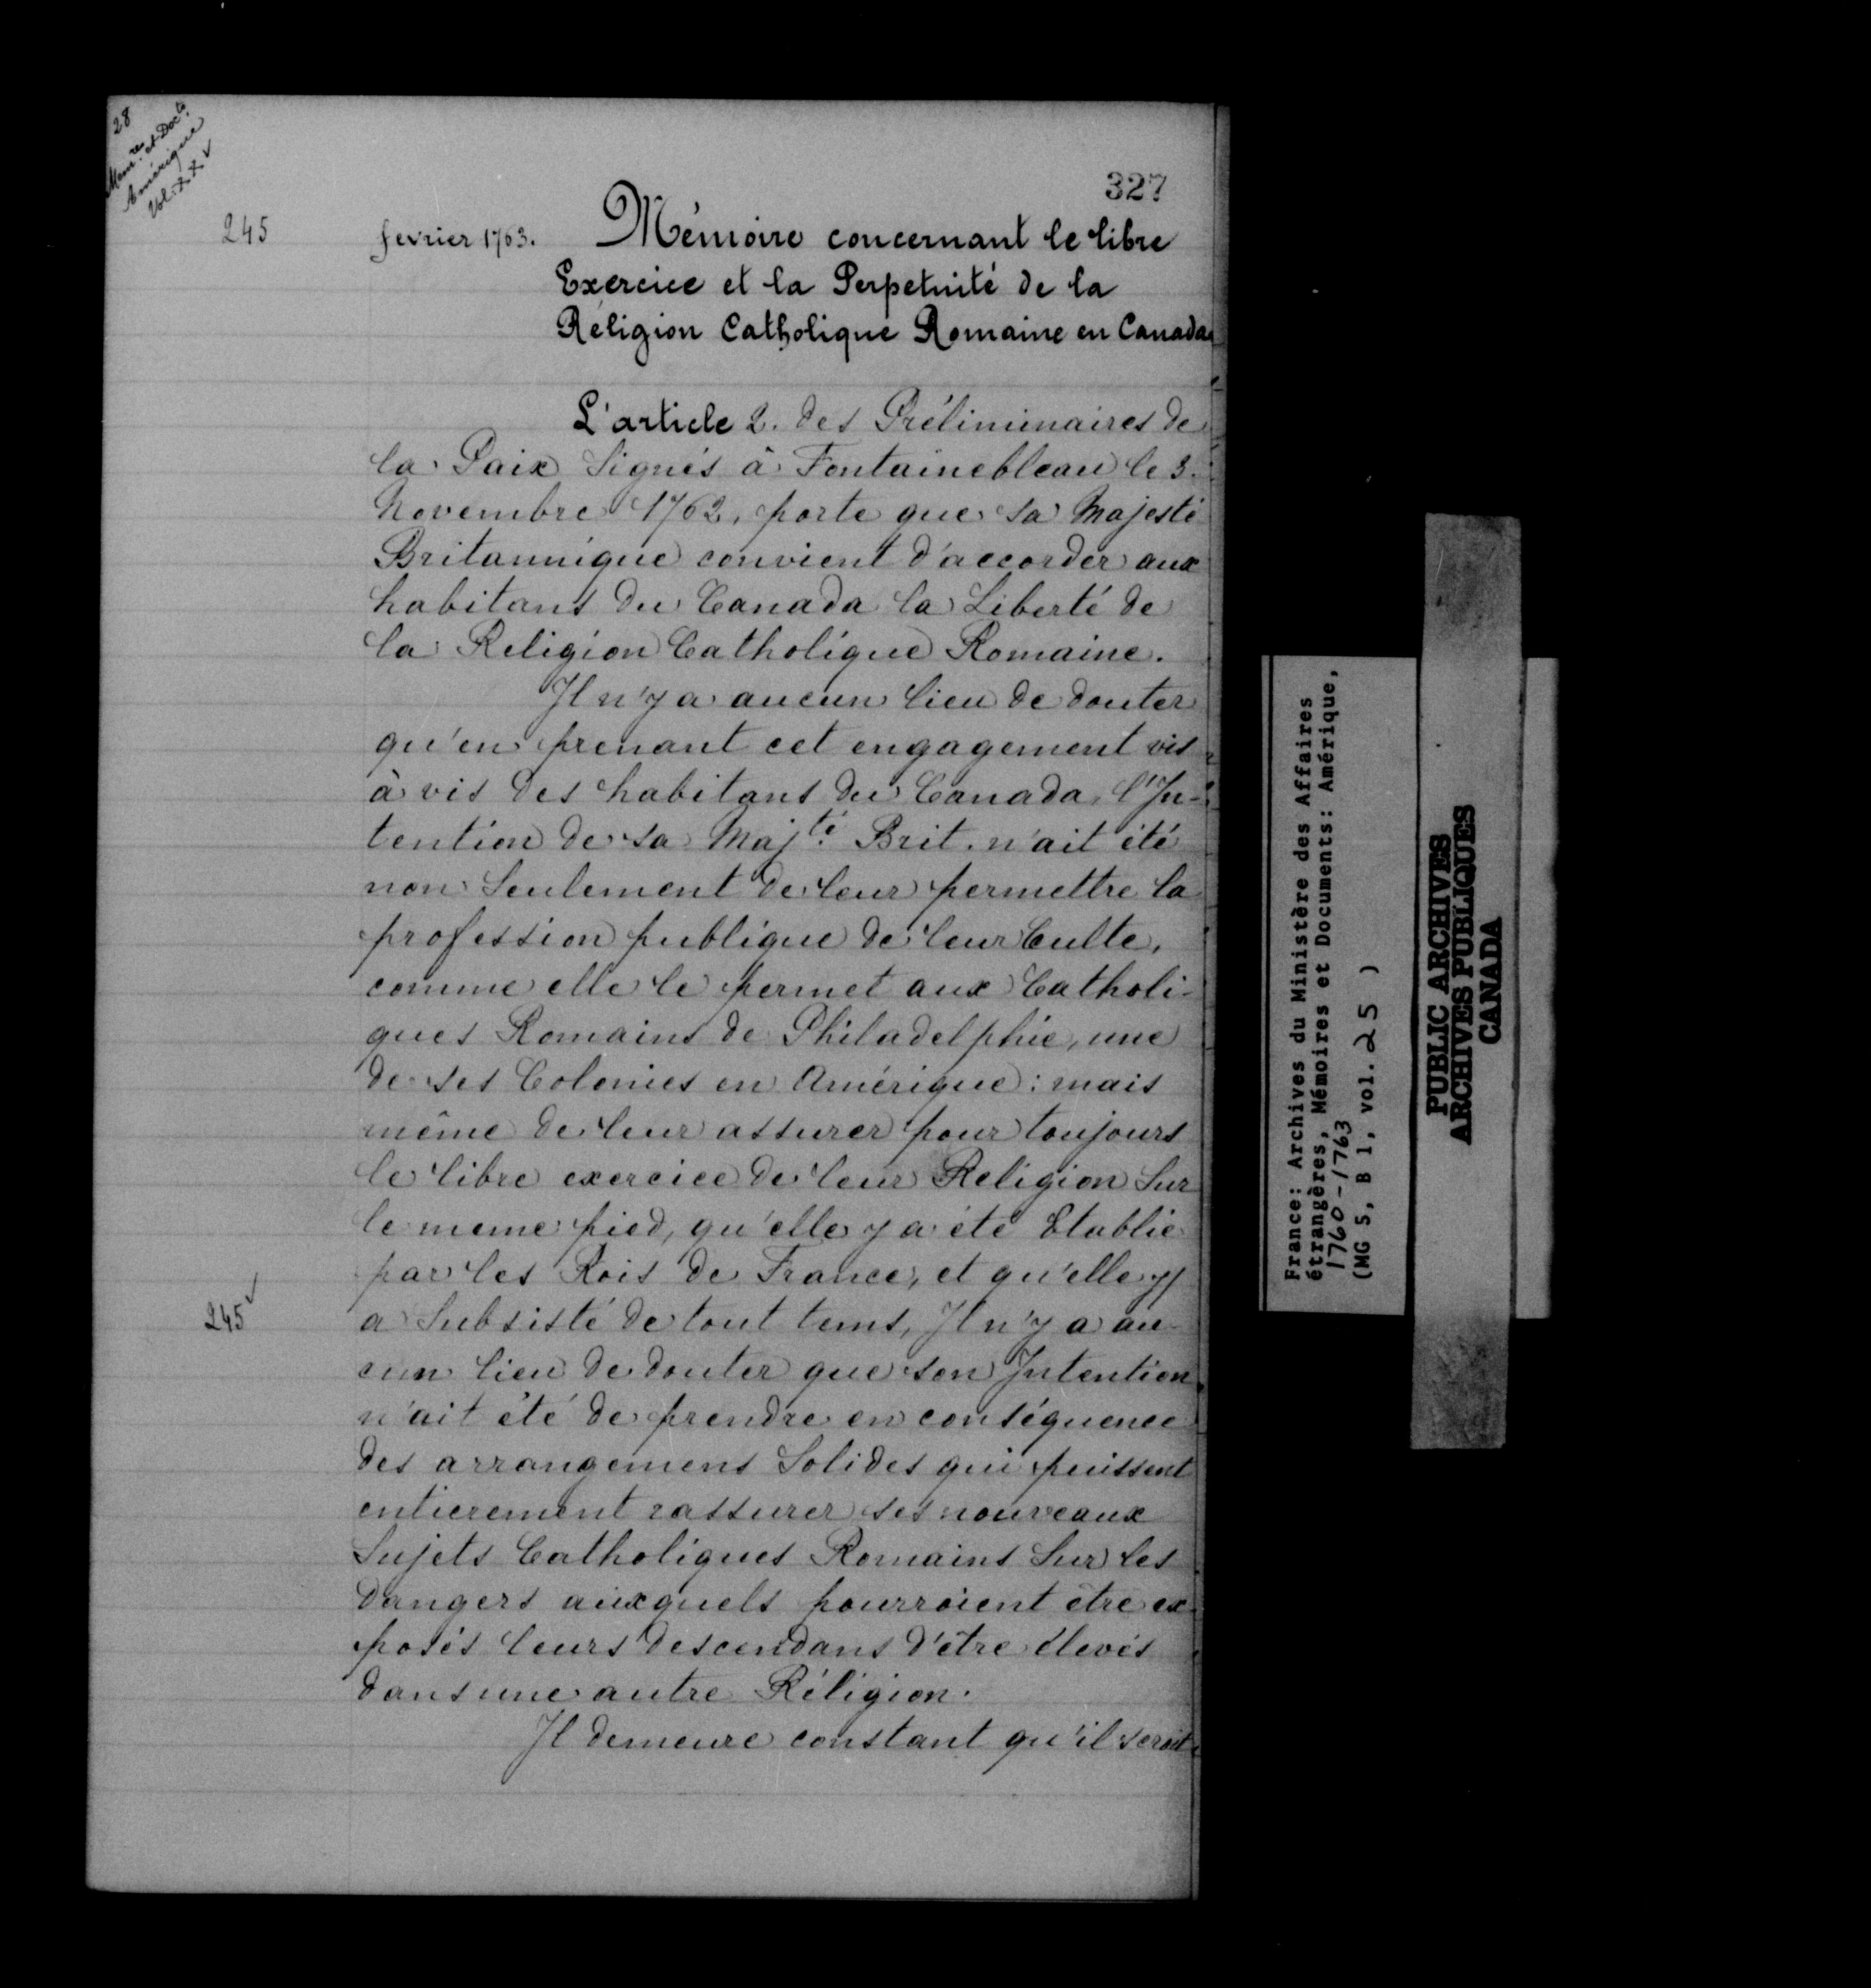 28
Memres et Docts
Amérique
Vol. XXV
327
245
fevrier 1763.
Mémoire concernant le libre
Exercice et la Perpetuité de la
Réligion Catholique Romaine en Canada
L'article 2. des Préliminaires de
la Paix Signés à Fontainebleau le 3.
Novembre 1762, porte que sa Majesté
Britannique convient d'accorder aux
habitans du Canada la Liberté de
la Religion Catholique Romaine.
Il n'y a aucun lieu de douter
qu'en prenant cet engagement vis
à vis des habitans du Canada, l'In-
tention de sa Majté Brit. n'ait été
non Seulement de leur permettre la
profession publique de leur Culte,
comme elle le permet aux Catholi-
ques Romains de Philadelphie, une
de ses Colonies en Amérique: mais
même de leur assurer pour toujours
le libre exercice de leur Religion Sur
le meme pied, qu'elle y a été Etablie
par les Rois de France, et qu'elle y
245v
a Subsisté de tout tems, Il n'y a au-
cun lieu de douter que son Intention
n'ait été de prendre en conséquence
des arrangemens Solides qui puissent
entierement rassurer ses nouveaux
Sujets Catholiques Romains Sur les
dangers auxquels pourroient être ex-
posés leurs descendans d'être élevés
dans une autre Réligion.
Il demeure constant qu'il seroit
France: Archives du Ministère des Affaires
étrangères, Mémoires et Documents: Amérique,
1760-1763
(MG 5, B 1, vol. 25 )
PUBLIC ARCHIVES
ARCHIVES PUBLIQUES
CANADA